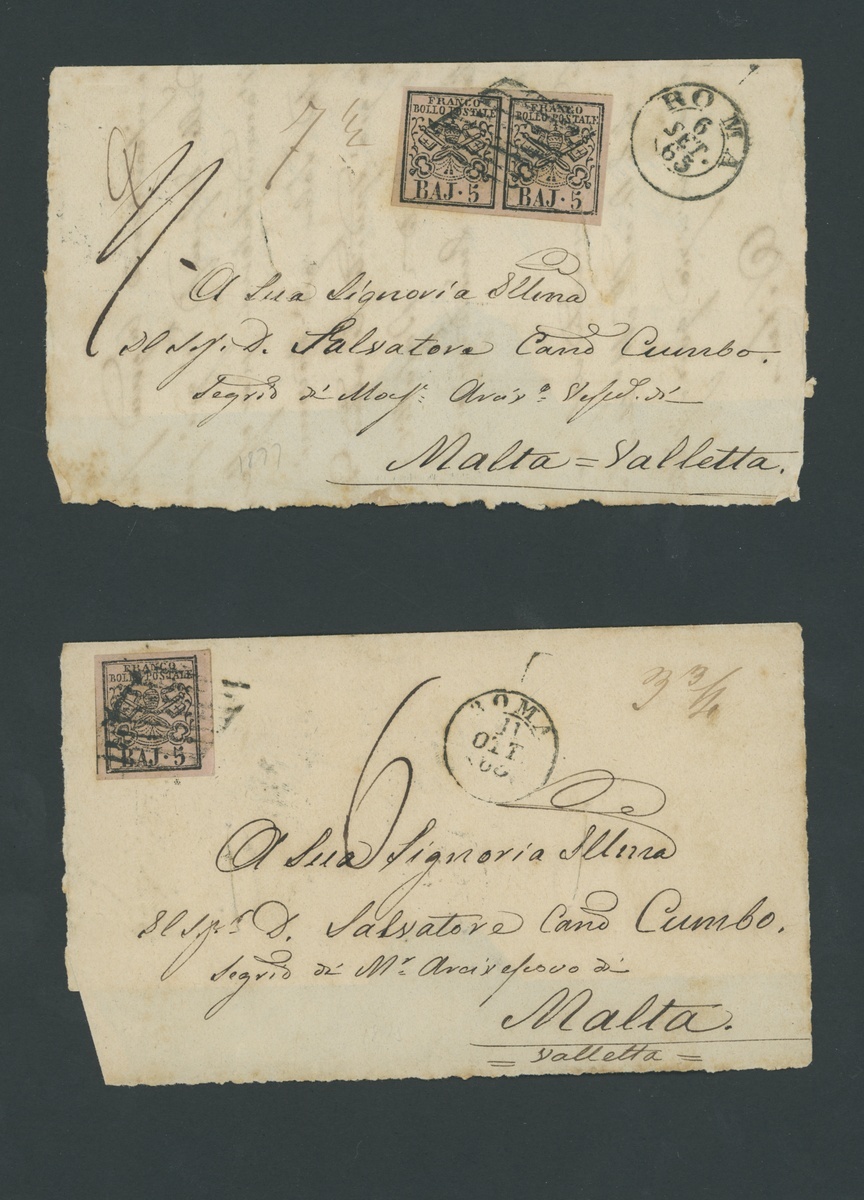 7
FRANCO
BOLLO POSTALE
BAJ·5
FRANCO
BOLLO POSTALE
BAJ·5
ROMA
6
SET.
65
A Sua Signoria Illma
Il Sigr. D. Salvatore Cano Cumbo.
Segrio di Arciv.o di
Malta = Valletta.
FRANCO
BOLLO POSTALE
BAJ·5
6
ROMA
11
OTT
65
A Sua Signoria Illma
Il Sigr D. Salvatore Cano Cumbo.
Segrio di Mr Arcivescovo di
Malta.
= Valletta =